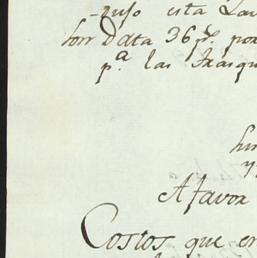 -puso esta La
horr Data 36 p.s por
p.a las Frasqu
hu
y
A favor
Costos que en